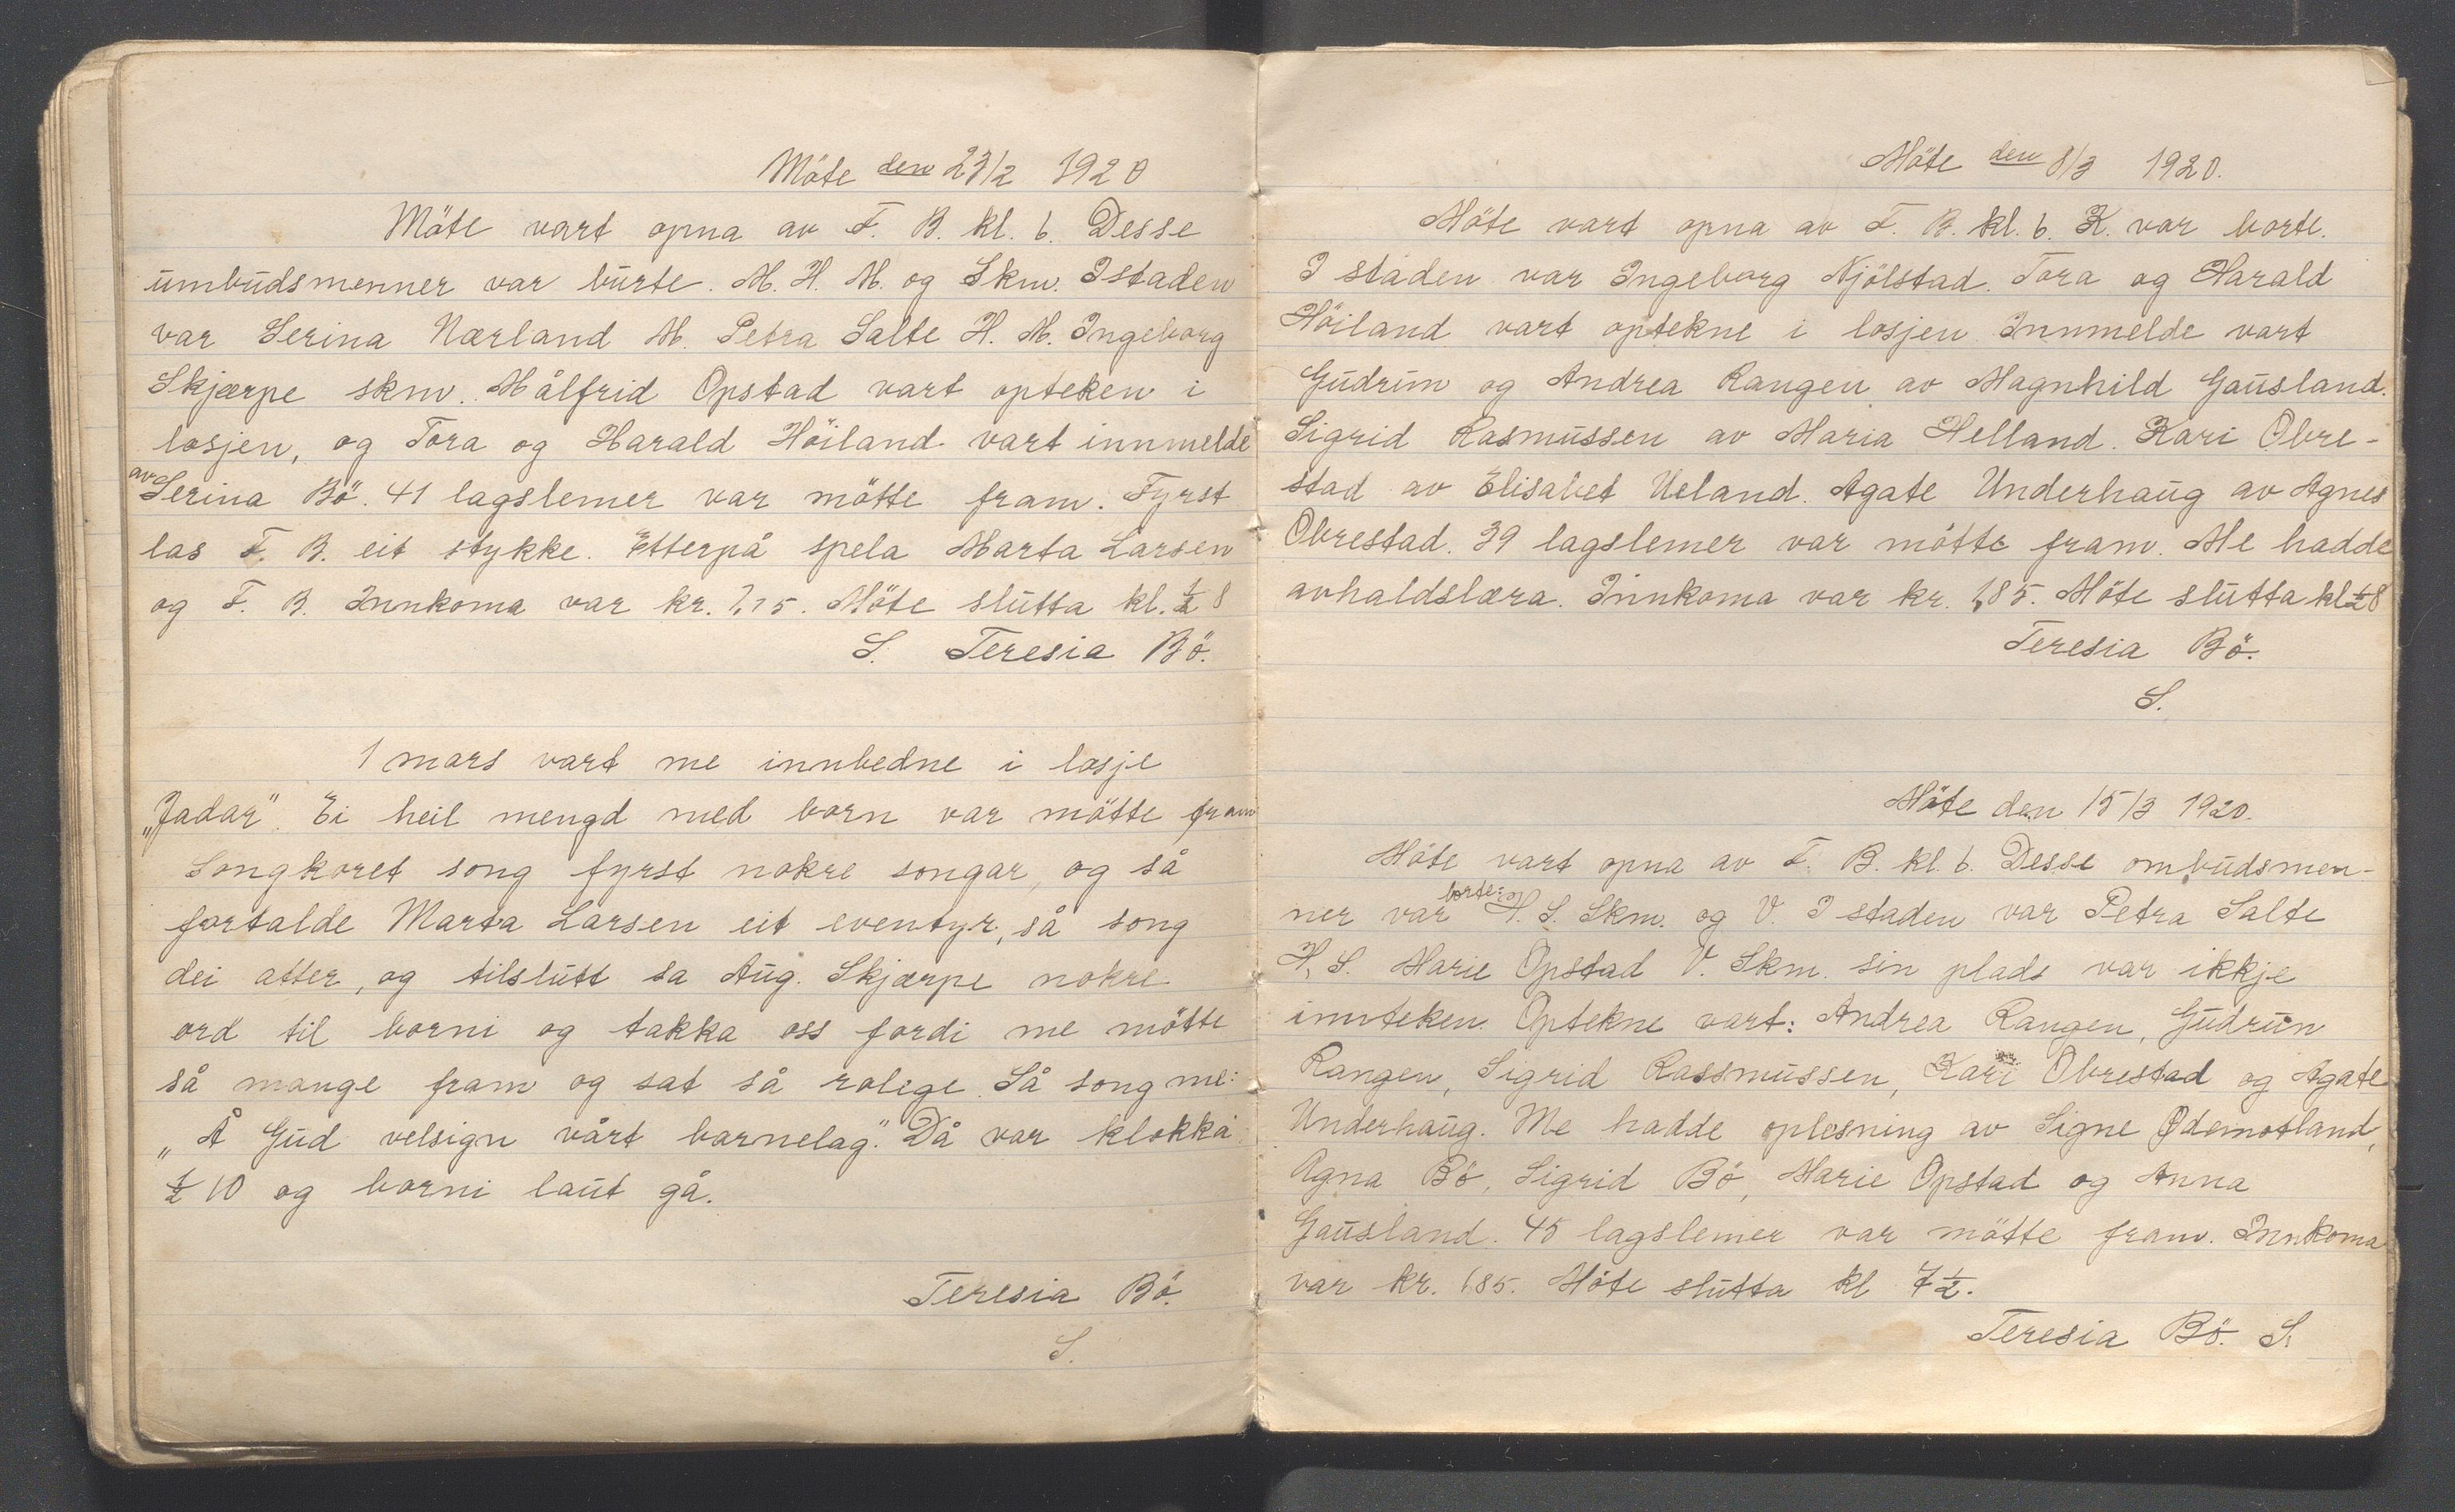 Möte den 23/2 1920
Möte vart opna av F. B. kl. 6. Desse
umbudsmenner var burte. M. H. M. og Skm. Istaden
var Serina Nærland M. Petra Salte H. M. Ingeborg
Skjærpe skm. Målfrid Opstad vart opteken i
losjen, og Tora og Harald Höiland vart innmelde
av Serina Bö. 41 lagslemer var mötte fram. Fyrst
las F. B. eit stykke. Etterpå spela Marta Larsen
og F. B. Innkoma var kr. Möte slutta kl. ½ 8
S. Teresia Bö.
1 mars vart me innbedne i losje
„Jadar". Ei heil mengd med born var mötte fram
Songkoret song fyrst nokre songar, og så
fortalde Marta Larsen eit eventyr, så song
dei atter, og tilslutt sa Aug. Skjærpe nokre
ord til borni og takka oss fordi me mötte
så mange fram og sat så rolege. Så song me:
„Å Gud velsign vårt barnelag". Då var klokka
½ 10 og borni laut gå.
Teresia Bö.
S.
Möte den 8/3 1920.
Möte vart opna av F. B. kl. 6. K. var borte.
I staden var Ingeborg Njölstad. Tora og Harald
Höiland vart optekne i losjen. Innmelde vart
Gudrun og Andrea Rangen av Magnhild Gausland.
Sigrid Rasmussen av Maria Helland. Kari Obre-
stad av Elisabet Ueland. Agate Underhaug av Agnes
Obrestad. 39 lagslemer var mötte fram. Me hadde
avhaldslæra. Innkoma var kr. 1,85. Möte slutta kl ½ 8
Teresia Bö.
S.
Möte den 15/3 1920.
Möte vart opna av F. B. kl. 6. Desse ombudsmen-
ner var borte: H. S. Skm. og V. I staden var Petra Salte
H. S. Marie Opstad V. Skm. sin plads var ikkje
innteken. Optekne vart: Andrea Rangen, Gudrun
Rangen, Sigrid Rassmussen, Kari Obrestad og Agate
Underhaug. Me hadde oplesning av Signe Ödemotland,
Agna Bö, Sigrid Bö, Marie Opstad og Anna
Gausland. 45 lagslemer var mötte fram. Innkoma
var kr. 1.85. Möte slutta kl 7 ½.
Teresia Bö. S.